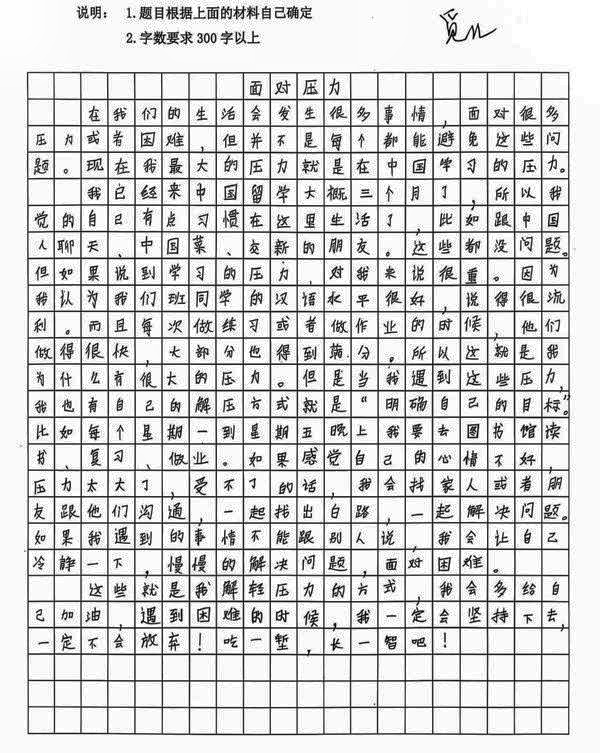 说明： 1. 题目根据上面的材料自己确定
2. 字数要求 300 字以上
面对压力
在我们的生活会发生很多事情，面对很多
压力或者困难，但并不是每个都能避免这些问
题。现在我最大的压力就是在中国学习的压力。
我已经来中国留学大概三个月了，所以我
觉的自己有点习惯在这里生活了，比如跟中国
人聊天、中国菜、交新的朋友。这些都没问题。
但如果说到学习的压力，对我来说很重。因为
我认为我们班同学的汉语水平很好，说得很流
利。而且每次做练习或者做作业的时候，他们
做得很快，大部分也得到满分。所以这就是我
为什么有很大的压力。但是当我遇到这些压力，
我也有自己的解压方式就是“明确自己的目标”
比如每个星期一到星期五晚上我要去图书馆读
书、复习、做业。如果感觉自己的心情不好，
压力太大了，受不了的话，我会找家人或者朋
友跟他们沟通，一起找出白路，一起解决问题。
如果我遇到的事情不能跟别人说，我会让自己
冷静一下，慢慢的解决问题，面对困难。
这些就是我解轻压力的方式，我会多给自
己加油，遇到困难的时候，我一定会坚持下去，
一定不会放弃！吃一堑，长一智吧！